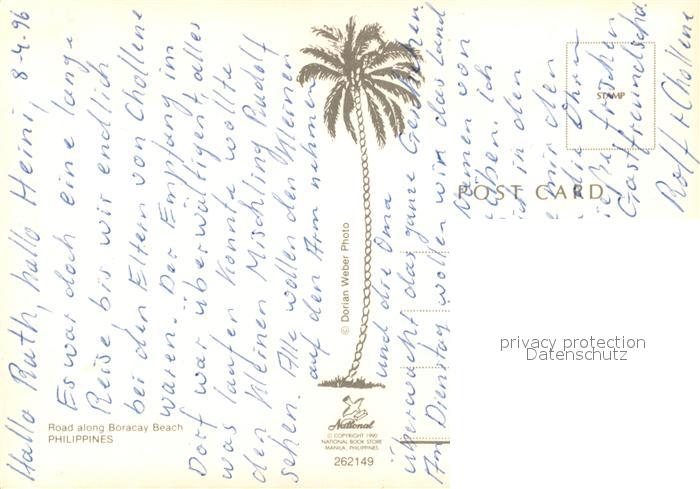 Hallo Ruth, hallo Heini, 8-4-96
Es war doch eine lange
Reise, bis wir endlich
bei den Eltern von Chollene
waren. Der Empfang im
Dorf war überwältigent, alles
was laufen konnte wollte
den kleinen Mischling Rudolf
sehen. Alle wollen den kleinen
auf den Arm nehmen
und die Oma
überwacht das ganze Geschehen.
Am Dienstag wollen wir das Land
von
ich
in den
mir den
die Ohren
frischen
Gastfreundscha
Rolf + Chollene
STAMP
POST CARD
© Dorian Weber Photo
Road along Boracay Beach
PHILIPPINES
National
© COPYRIGHT 1990
NATIONAL BOOK STORE
MANILA, PHILIPPINES
262149
privacy protection
Datenschutz